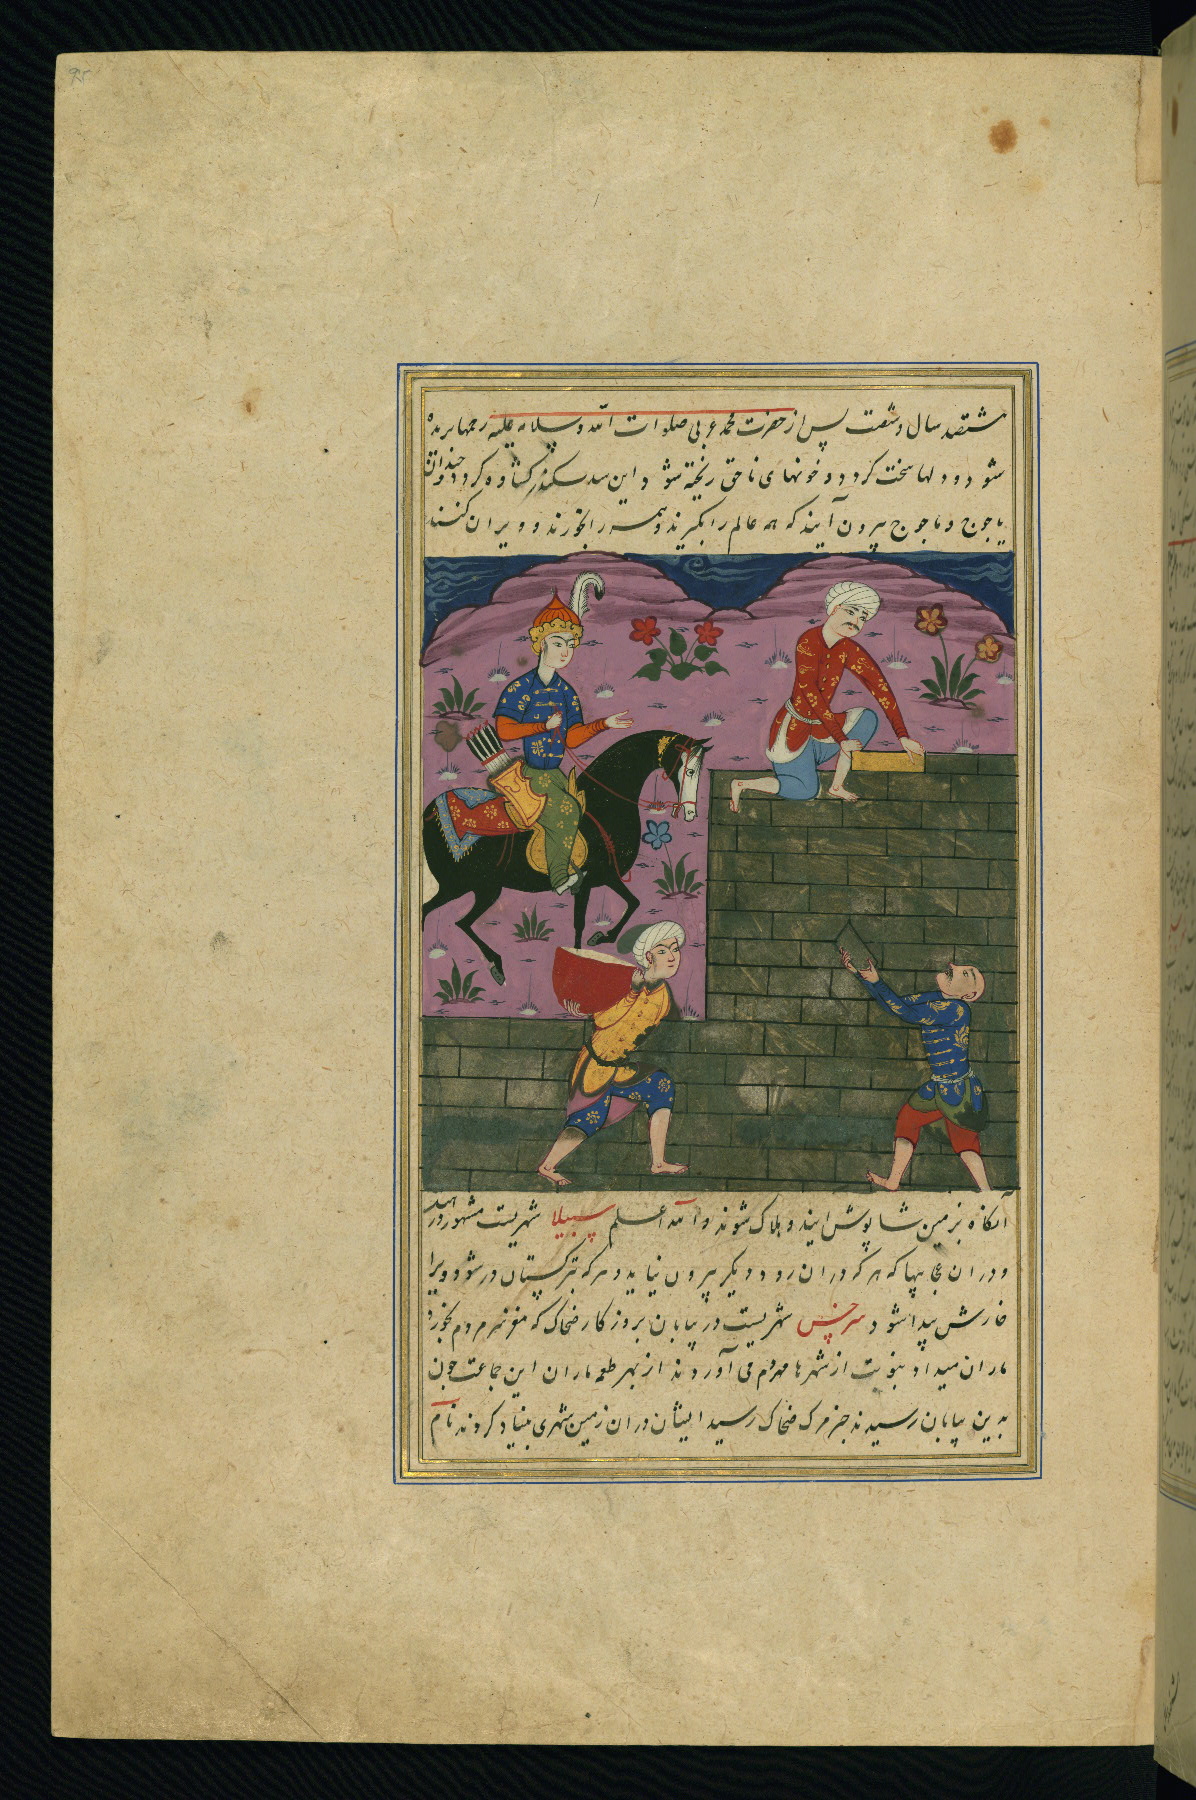 ششصد سال و شصت پس از حضرت محمد عربی صلوات الله و سلامه علیه رحمها بریده
شود و دلها سخت کردد و خونهای ناحق ریخته شود و این سد سکندر کشاده کردد و چندان
یاجوج و ماجوج بیرون آیند که همه عالم را بکیرند و همه را بخورند و ویران کنند
آنکاه بزمین شاپوش آیند و هلاک شوند والله اعلم سبیلا شهریست مشهور در هند
و در ان عجایبها که هر که در ان رود دیکر بیرون نیاید و هر که بترکستان در شود ویرا
خارش پیدا شود سرخس شهریست در بیابان بروزکار ضحاک که مغز سر مردم بخورد
ماران میداد بنوبت از شهرها مردم می آوردند از بهر طعمه ماران این جماعت چون
بدین بیابان رسیدند خبر مرک ضحاک رسید ایشان در ان زمین شهری بنیاد کردند نام